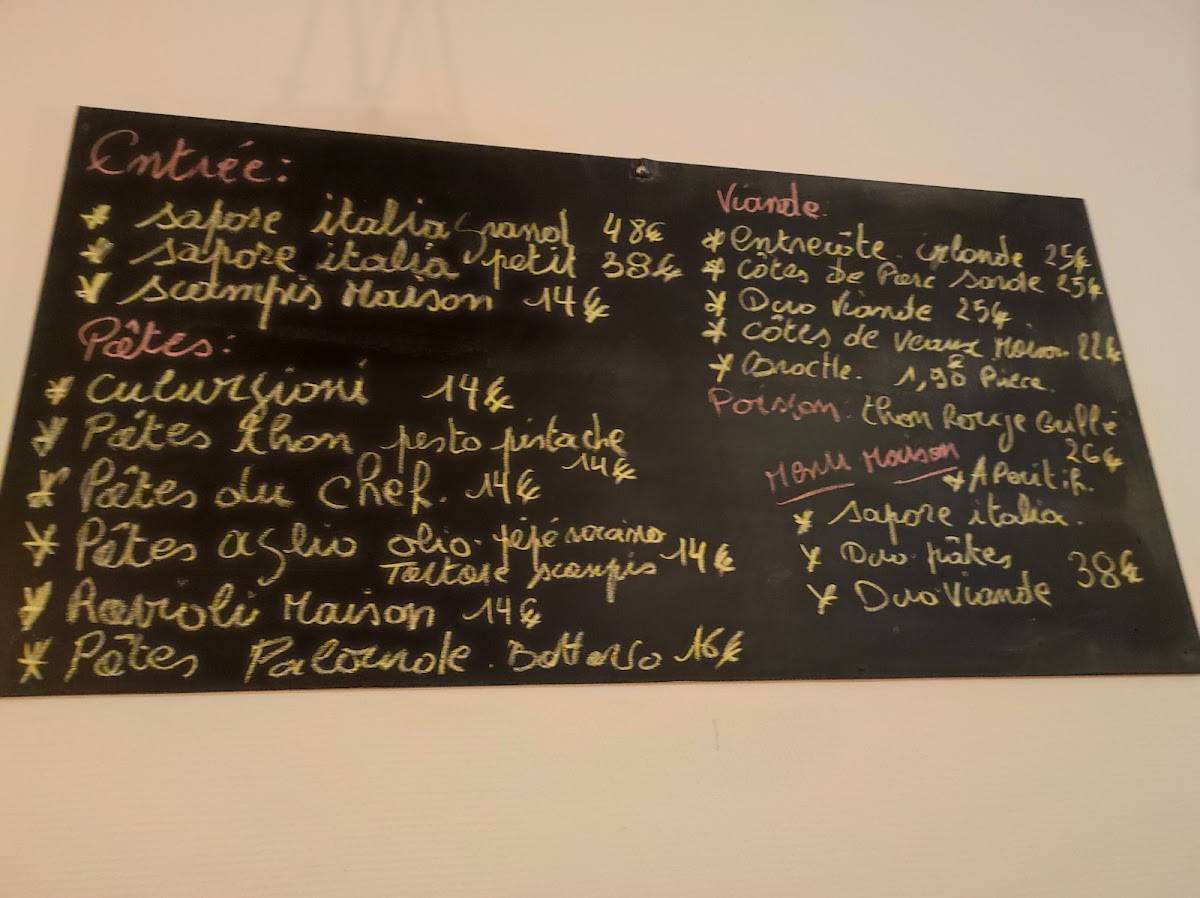 Entrée:
* sapore italia grand 48€
* sapore italia petit 38€
* scampis Maison 14€
Pâtes:
* culurgioni 14€
* Pâtes thon pesto pistache
14€
* Pâtes du chef. 14€
* Pâtes aglio olio. pépéroncino 14€
Tartare scampis
* Ravioli Maison 14€
* Pâtes 16€
Viande:
* entrecôte irlande 25€
* côtes de Porc Sarde 25€
* Duo Viande 25€
* côtes de veaux Maison 22€
* 1,98€ Pièce.
Poisson: thon Rouge Grillé
26€
Menu Maison
* APéritif.
* sapore italia.
* Duo pâtes
38€
* Duo Viande